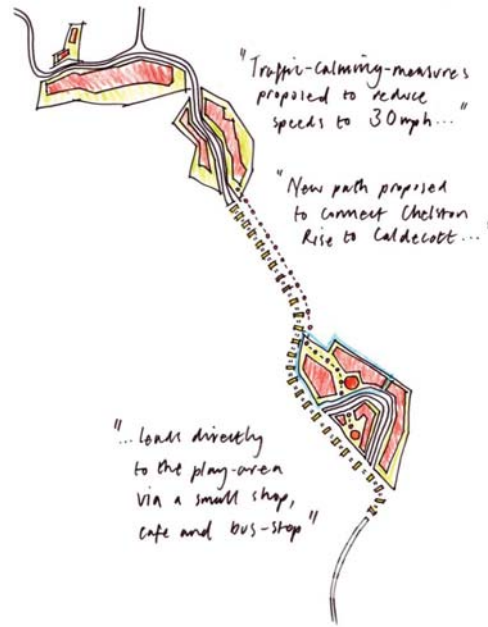 "Traffic-calming-measures
proposed to reduce
speeds to 30mph..."
"New path proposed
to connect Chelston
Rise to Caldecott..."
"...leads directly
to the play-area
via a small shop,
cafe and bus-stop"